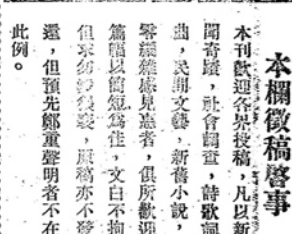 本欄徵稿啓事
本刊歡迎各界投稿，凡以新
聞奇蹟，社會調查，詩歌詞
曲，民間文藝，新舊小說，
零縑雜感見惠者，俱所歡迎
篇幅以簡短爲佳，文白不拘
但求勿抄襲，稿亦不發
還，但預先鄭重聲明者不在
此例。